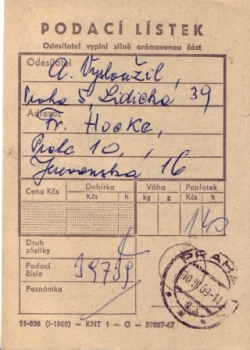 PODACÍ LÍSTEK
Odesílatel vyplní silně orámovanou část
Odesílatel
A. Vysloužil,
Praha 5, Lidická 39
Adresát
Fr. Hocke,
Praha 10,
16
Cena Kčs Dobírka Váha Poplatek
Kčs h kg g Kčs h
140
Druh
zásilky
Podací
číslo
Poznámka
PRAHA
11-036 (I-1968) - KNT 1 - G - 57887-67